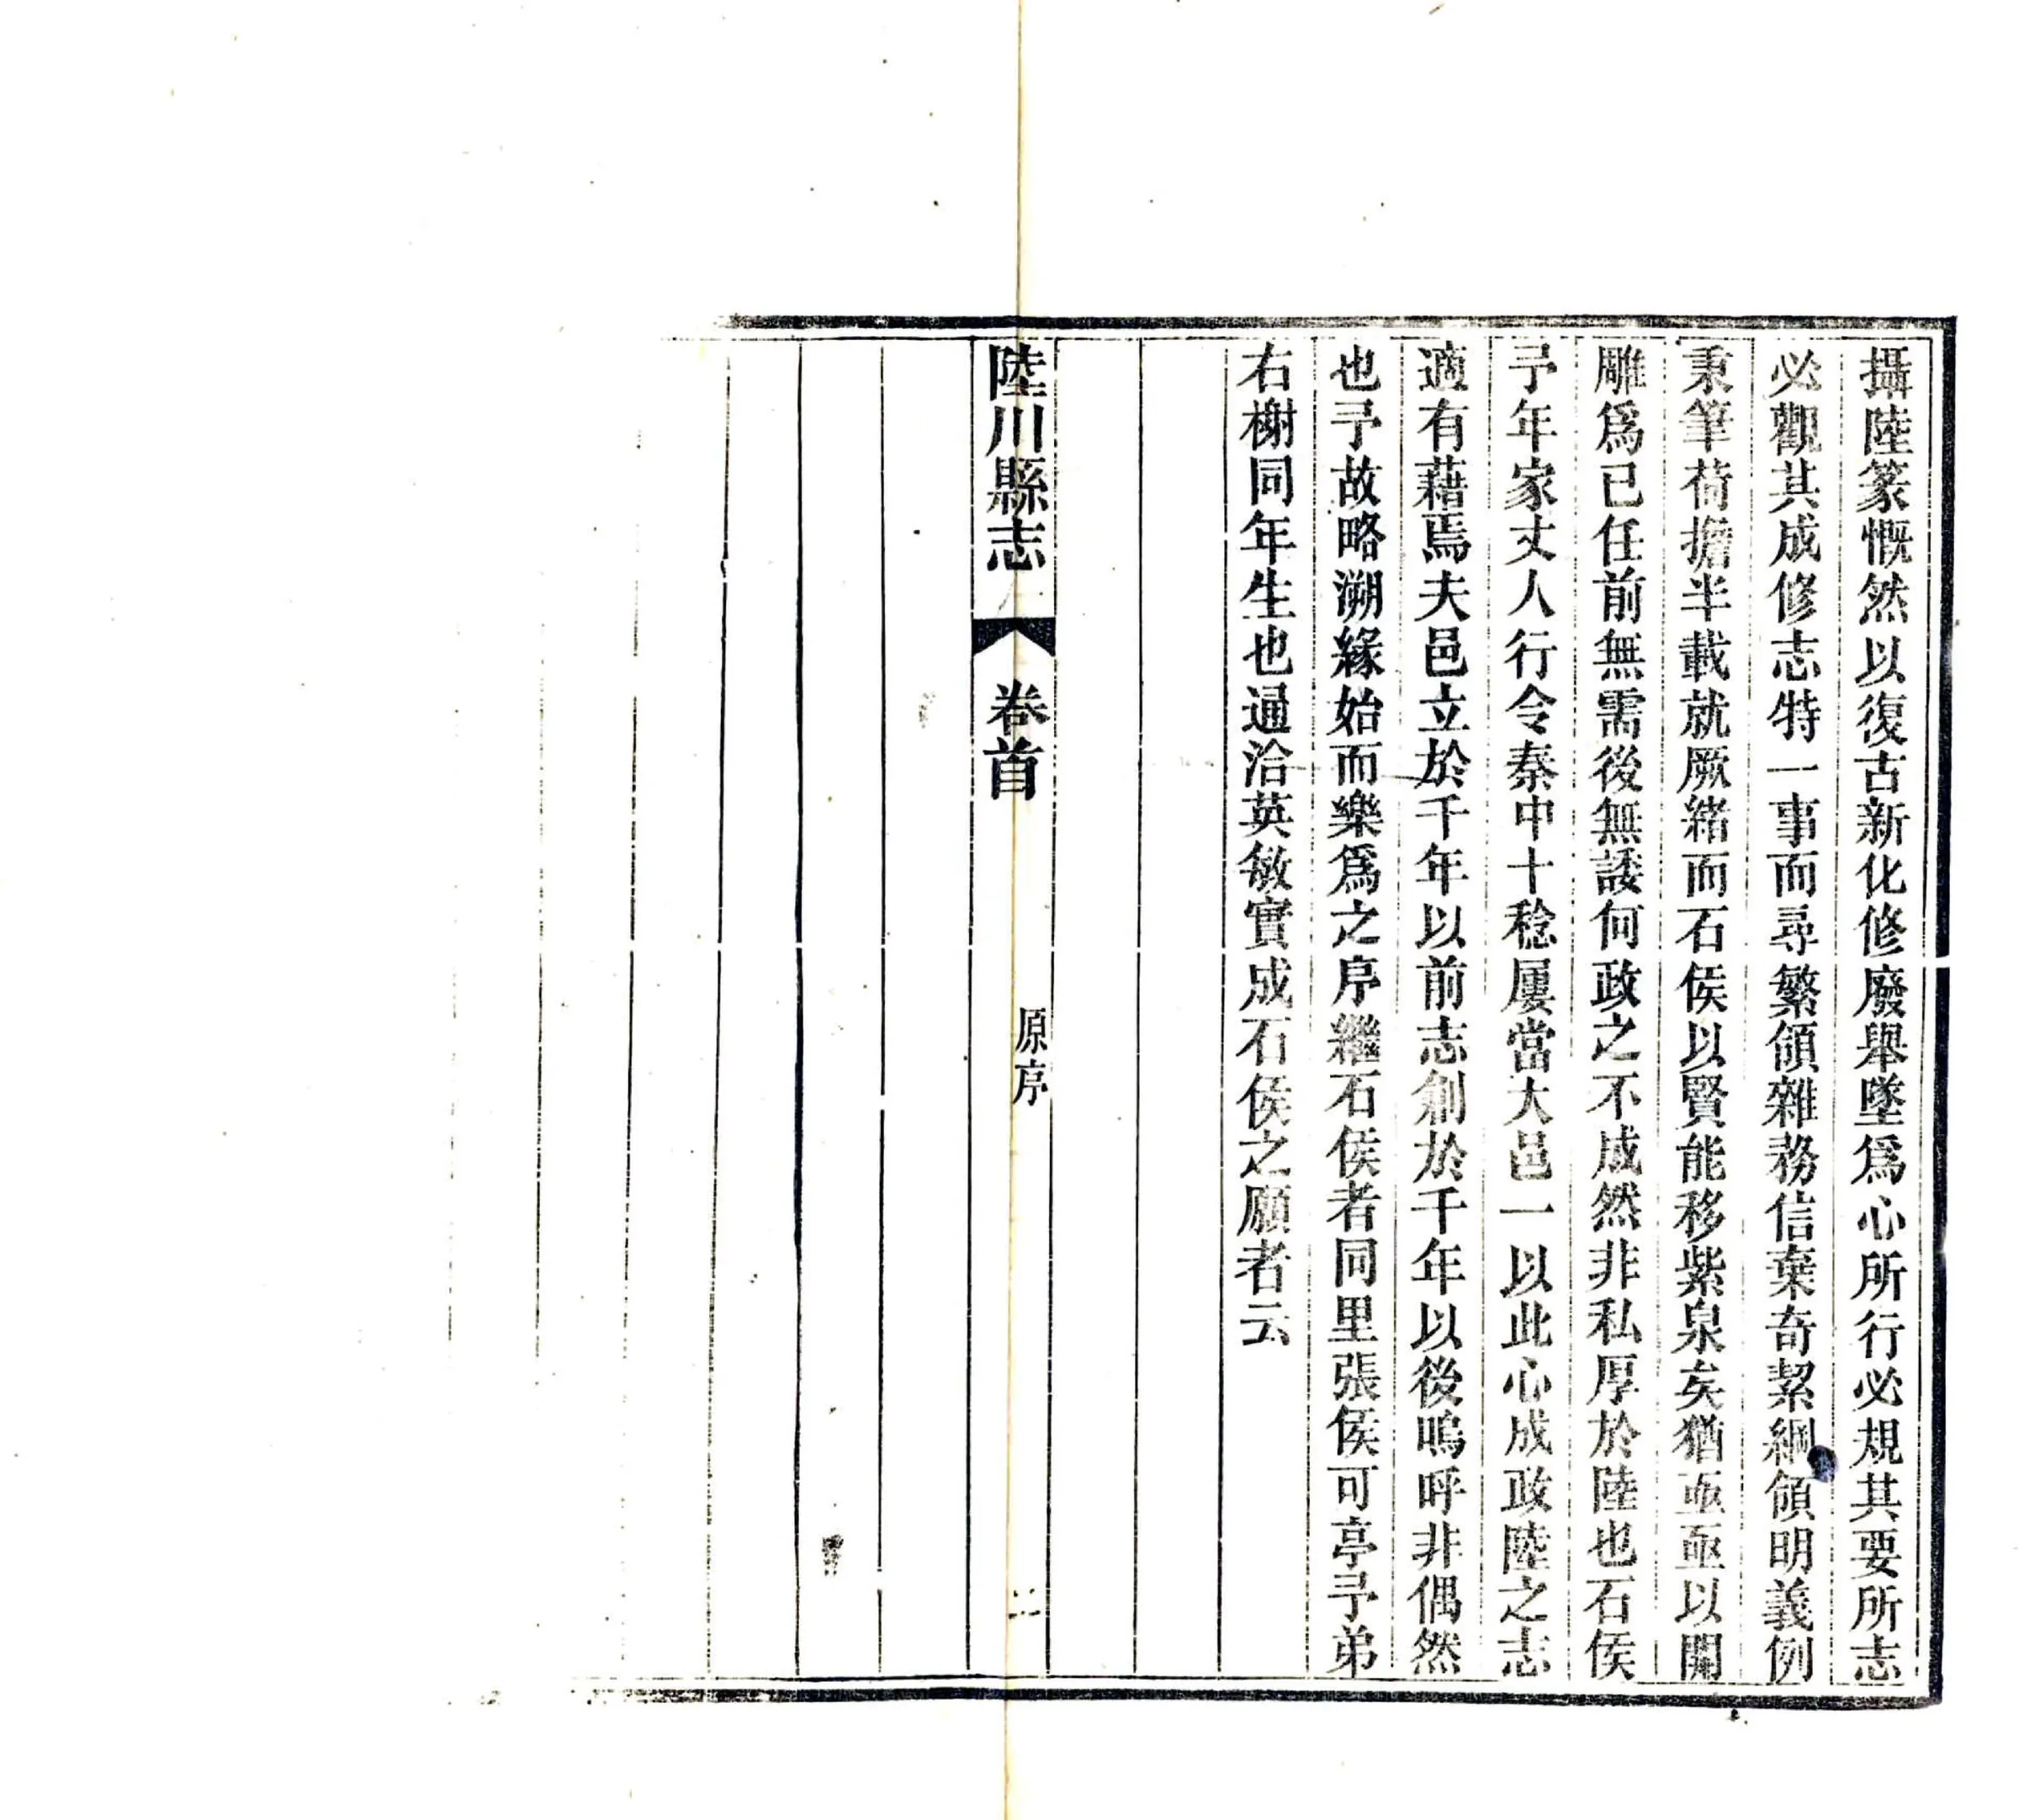 攝陸篆慨然以復古新化修廢舉墜爲心所行必規其要所志
必觀其成修志特一事而尋繁領雜務信棄奇絜綱領明義例
秉筆荷擔半載就厥緒而石侯以賢能移紫泉矣猶亟亟以開
雕爲已任前無需後無諉何政之不成然非私厚於陸也石侯
予年家丈人行令秦中十稔屢當大邑一以此心成政陸之志
適有藉焉夫邑立於千年以前志創於千年以後嗚呼非偶然
也予故略溯緣始而樂爲之序繼石侯者同里張侯可亭予弟
右榭同年生也通洽英敏實成石侯之願者云
陸川縣志
卷首
原序
二